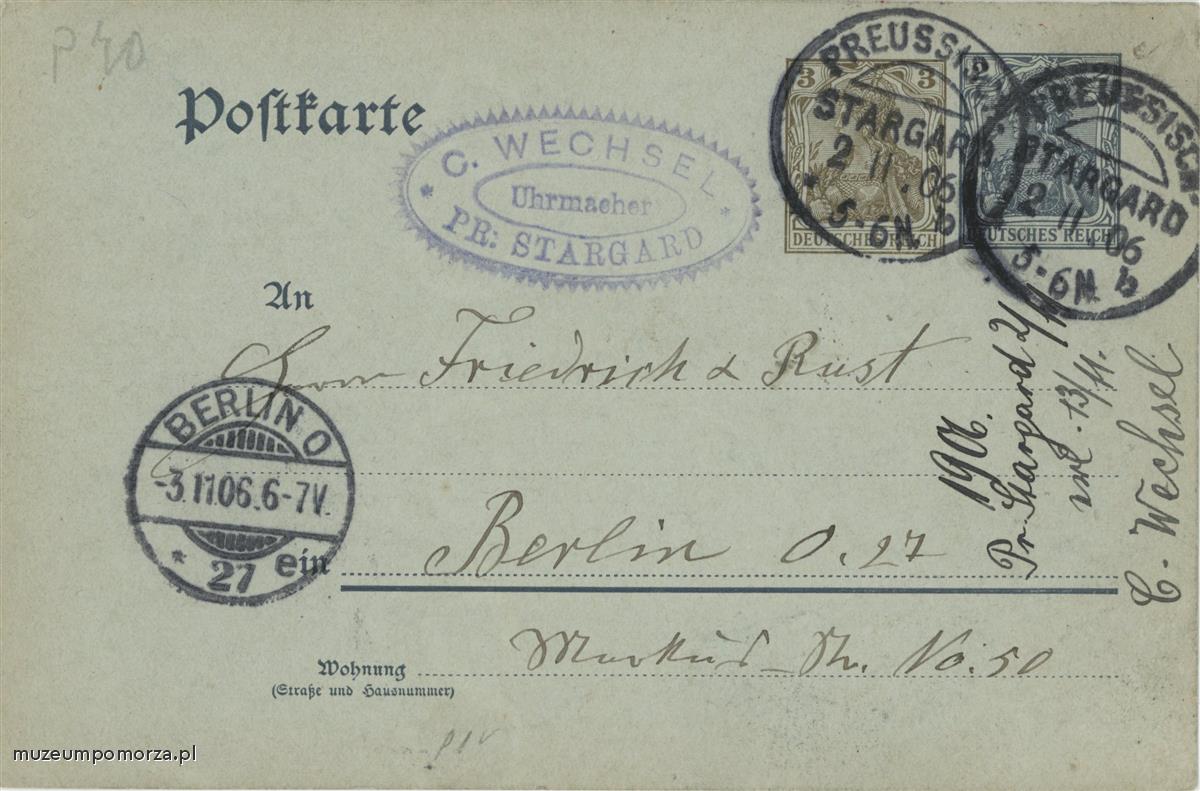 P 40
Postkarte
C. WECHSEL
Uhrmacher
PR: STARGARD
3 3
DEUTSCHES REICH
2
DEUTSCHES REICH
PREUSSISCH
STARGARD
2 11.06
5-6N. b
PREUSSISCH
STARGARD
2 11.06
5-6N. b
An
Herrn Friedrich & Rust
BERLIN O
-3.11.06.6-7V.
* 27 ein
Berlin O. 27
Markus-Str. No. 50
Wohnung
(Straße und Hausnummer)
1906.
Pr. Stargard 2/11
erl. 13/11.
C. Wechsel
muzeumpomorza.pl